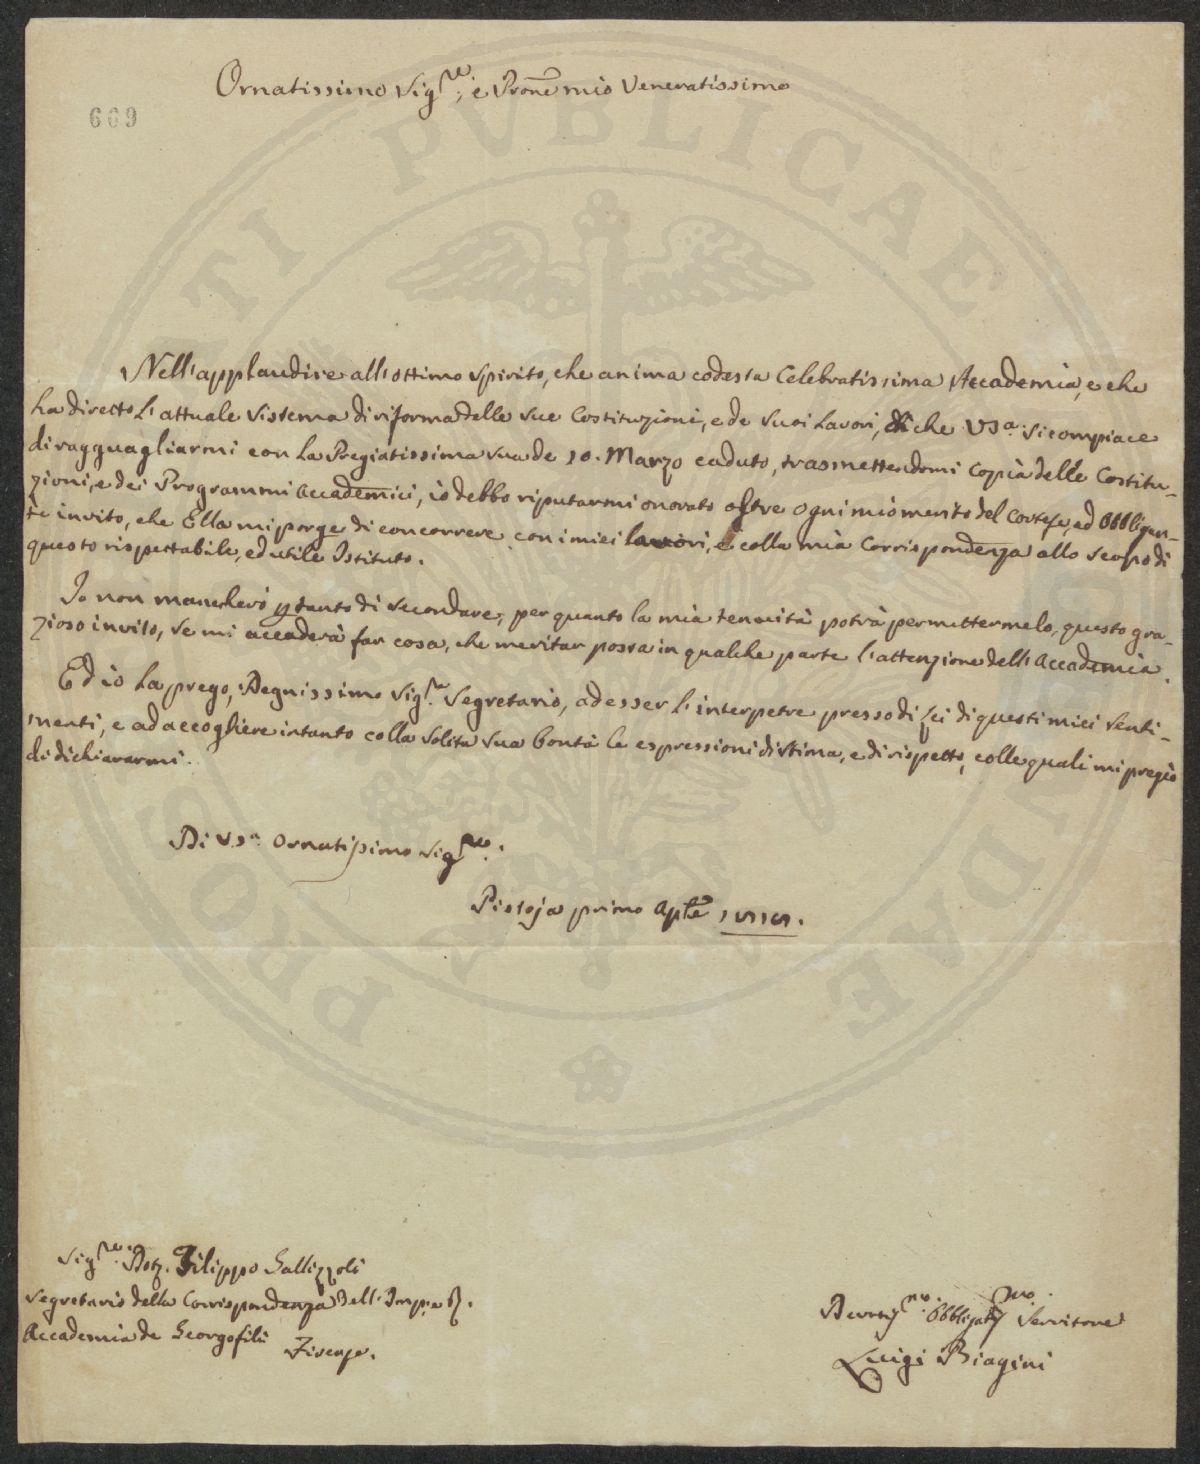 Ornatissimo Sig.re, e Prone mio Veneratissimo
669
PROSPERITATI PUBLICAE
Nell'applaudire all'ottimo spirito, che anima codesta Celebratissima Accademia, e che
ha diretto l'attuale sistema di riforma delle sue Costituzioni, e de suoi Lavori, di che VSa. si compiace
di ragguagliarmi con la Pregiatissima sua de 10. Marzo caduto, trasmettendomi Copia delle Costitu-
zioni, e dei Programmi Accademici, io debbo riputarmi onorato oltre ogni mio merito del Cortese, ed obbligan-
te invito, che Ella mi porge di concorrere con i miei lavori, e colla mia Corrispondenza allo scopo di
questo rispettabile, ed utile Istituto.
Io non mancherò ptanto di secondare, per quanto la mia tenuità potrà permettermelo, questo gra-
zioso invito, se mi accaderà far cosa, che meritar possa in qualche parte l'attenzione dell'Accademia.
Ed io La prego, Degnissimo Sig.re Segretario, ad esser l'interpetre presso di Lei di questi miei senti-
menti, e ad accogliere intanto colla solita sua bontà le espressioni di stima, e di rispetto, colle quali mi pregio
di dichiararmi.
Di V.Sa. Ornatissimo Sig.re.
Pistoja primo Aple
Sig.re Dott. Filippo Gallizzoli
Segretario della Corrispondenza dell'Imp.e R.
Accademia de Georgofili
Firenze.
Devotmo. Obbligatmo. Servitore
Luigi Biagini